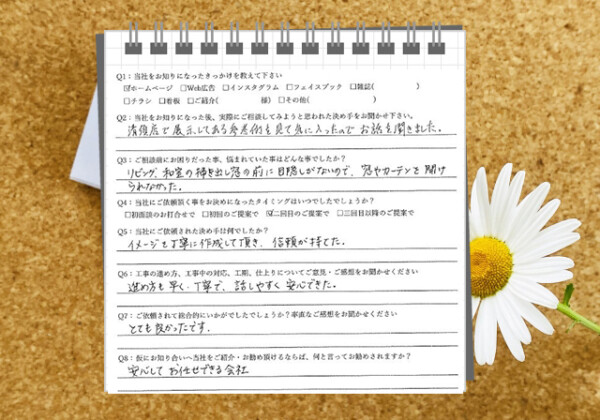 Q1：当社をお知りになったきっかけを教えて下さい
☑ホームページ □Web広告 □インスタグラム □フェイスブック □雑誌( )
□チラシ □看板 □ご紹介( 様) □その他( )
Q2：当社をお知りになった後、実際にご相談してみようと思われた決め手をお聞かせ下さい。
展示してある 見て気に入ったので お話を聞きました。
Q3：ご相談前にお困りだった事、悩まれていた事はどんな事でしたか？
リビング、和室の掃き出し窓の前に目隠しがないので、窓やカーテンを開け
られなかった。
Q4：当社にご依頼頂く事をお決めになったタイミングはいつでしたでしょうか？
□初面談のお打合せで □初回のご提案で ☑二回目のご提案で □三回目以降のご提案で
Q5：当社にご依頼された決め手は何でしたか？
イメージを丁寧に作成して頂き、信頼が持てた。
Q6：工事の進め方、工事中の対応、工期、仕上りについてご意見・ご感想をお聞かせください
進め方も早く、丁寧で、話しやすく安心できた。
Q7：ご依頼されて総合的にいかがでしたでしょうか？率直なご感想をお聞かせください
とても良かったです。
Q8：仮にお知り合いへ当社をご紹介・お勧め頂けるならば、何と言ってお勧めされますか？
安心してお任せできる会社